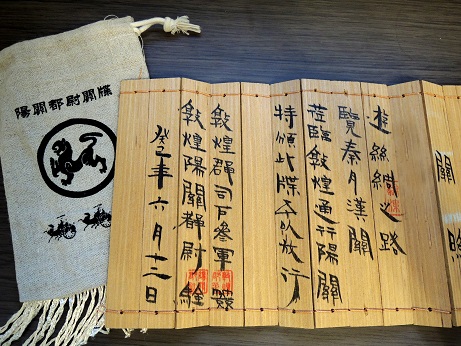 陽關都尉關牒
關
遊絲綢之路
覽秦月漢關
蒞臨敦煌通行陽關
特頒此牒予以放行
敦煌郡司戶參軍
敦煌陽關都尉
癸巳年六月十二日